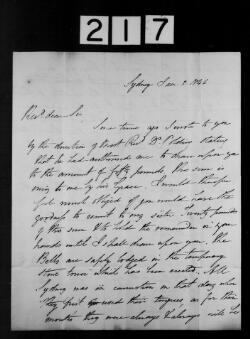 217
Sydney Jan 2 1844
Revd dear Sir
Some time ago I wrote to you
by the direction of Most Revd Dr Polding
that he had authorised me to draw upon you
to the amount of fifty pounds this sum is
owing to me by his Grace. I would therefore
feel much obliged if you would have the
goodness to remit to my sister twenty pounds
of this sum & to hold the remainder in your
hands until I shall draw upon you. The
Bells are safely lodged in the temporary
stone tower which has been erected. All
Sydney was in commotion on that day when
they first their tongues as for three
months they were always & always